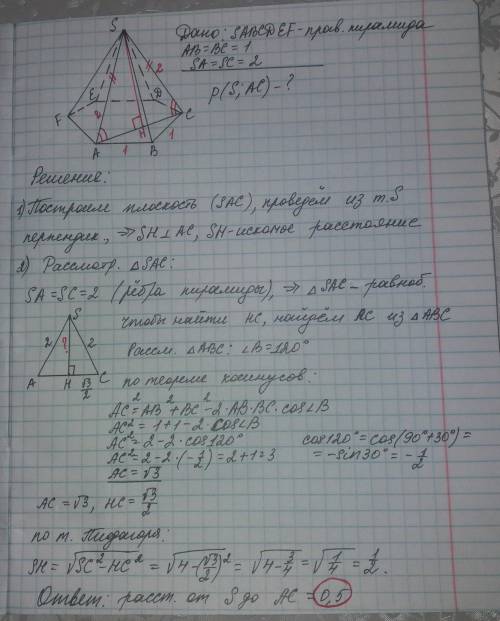 S
Дано: SABCDEF - прав. пирамида
AB=BC=1
SA=SC=2
ρ(S; AC) - ?
2
E
D
F
2
H
C
A
1
B
1
Решение:
1) Построим плоскость (SAC), проведём из т. S
перпендик., ⇒ SH ⊥ AC, SH - искомое расстояние
2) Рассмотр. △SAC:
SA=SC=2 (рёбра пирамиды), ⇒ △SAC - равноб.
чтобы найти HC, найдём AC из △ABC
S
2
?
2
A
H
√3/2
C
Рассм. △ABC: ∠B=120°
по теореме косинусов:
AC²=AB²+BC²-2·AB·BC·cos∠B
AC²=1+1-2·cos∠B
AC²=2-2·cos120°
cos120°=cos(90°+30°)=
AC²=2-2·(-1/2)=2+1=3
=-sin30°=-1/2
AC=√3
AC=√3, HC=√3/2
по т. Пифагора:
SH=√(SC²-HC²)=√(4-(√3/2)²)=√(4-3/4)=√(1/4)=1/2.
Ответ: расст. от S до AC=0,5